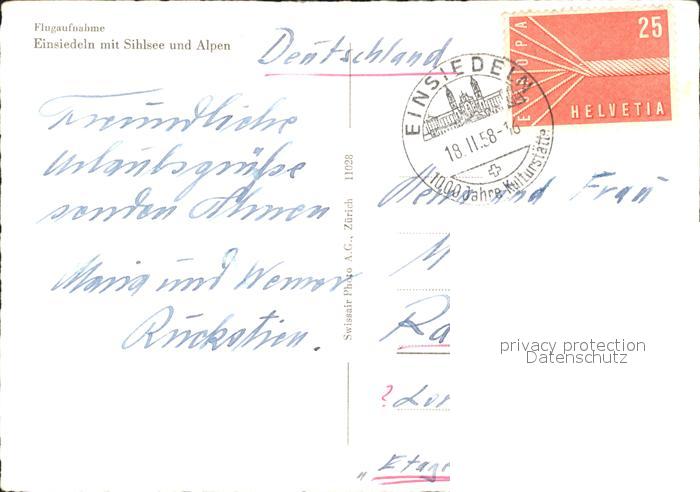 Flugaufnahme
Einsiedeln mit Sihlsee und Alpen
Deutschland
EUROPA
25
HELVETIA
EINSIEDELN
18.II.58-16
1000 Jahre Kulturstätte
Freundliche
Urlaubsgrüße
senden Ihnen
Maria und Werner
Swissair Photo A.G., Zürich 11028
Herr und Frau
M
Ra
privacy protection
Datenschutz
?
"Etage